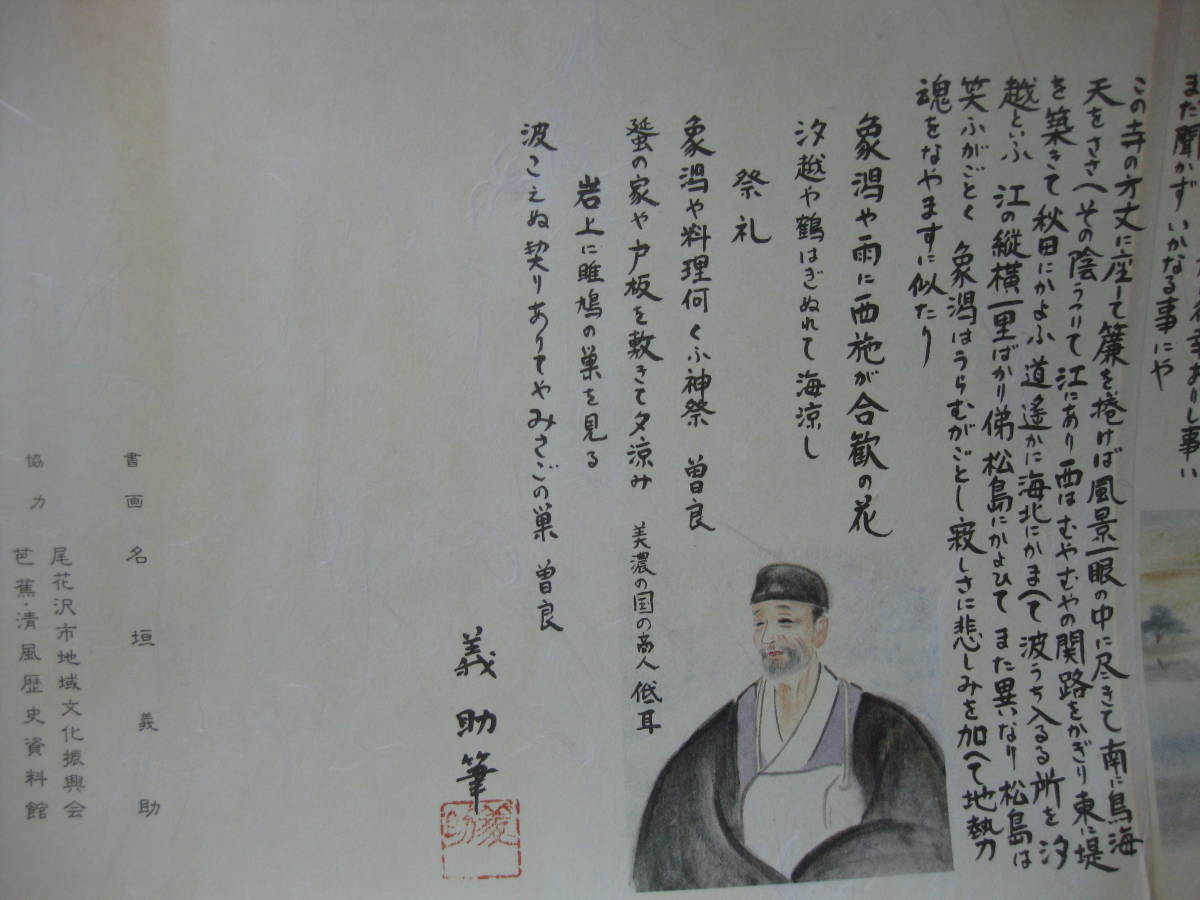 また聞かず いかなる事にや
この寺の方丈に座して簾を捲けば風景一眼の中に尽きて 南に鳥海
天をささへその陰うつりて江にあり 西はむやむやの関路をかぎり東に堤
を築きて秋田にかよふ道遙かに海北にかまへて波うち入るる所を汐
越といふ 江の縦横一里ばかり俤松島にかよひてまた異なり 松島は
笑ふがごとく 象潟はうらむがごとし 寂しさに悲しみを加へて地勢
魂をなやますに似たり
象潟や雨に西施が合歓の花
汐越や鶴はぎぬれて海涼し
祭礼
象潟や料理何くふ神祭 曽良
蜑の家や戸板を敷きて夕涼み 美濃の国の商人 低耳
岩上に雎鳩の巣を見る
波こえぬ契りありてやみさごの巣 曽良
義助筆
義助
書画 名垣義助
協力 尾花沢市地域文化振興会
芭蕉・清風歴史資料館